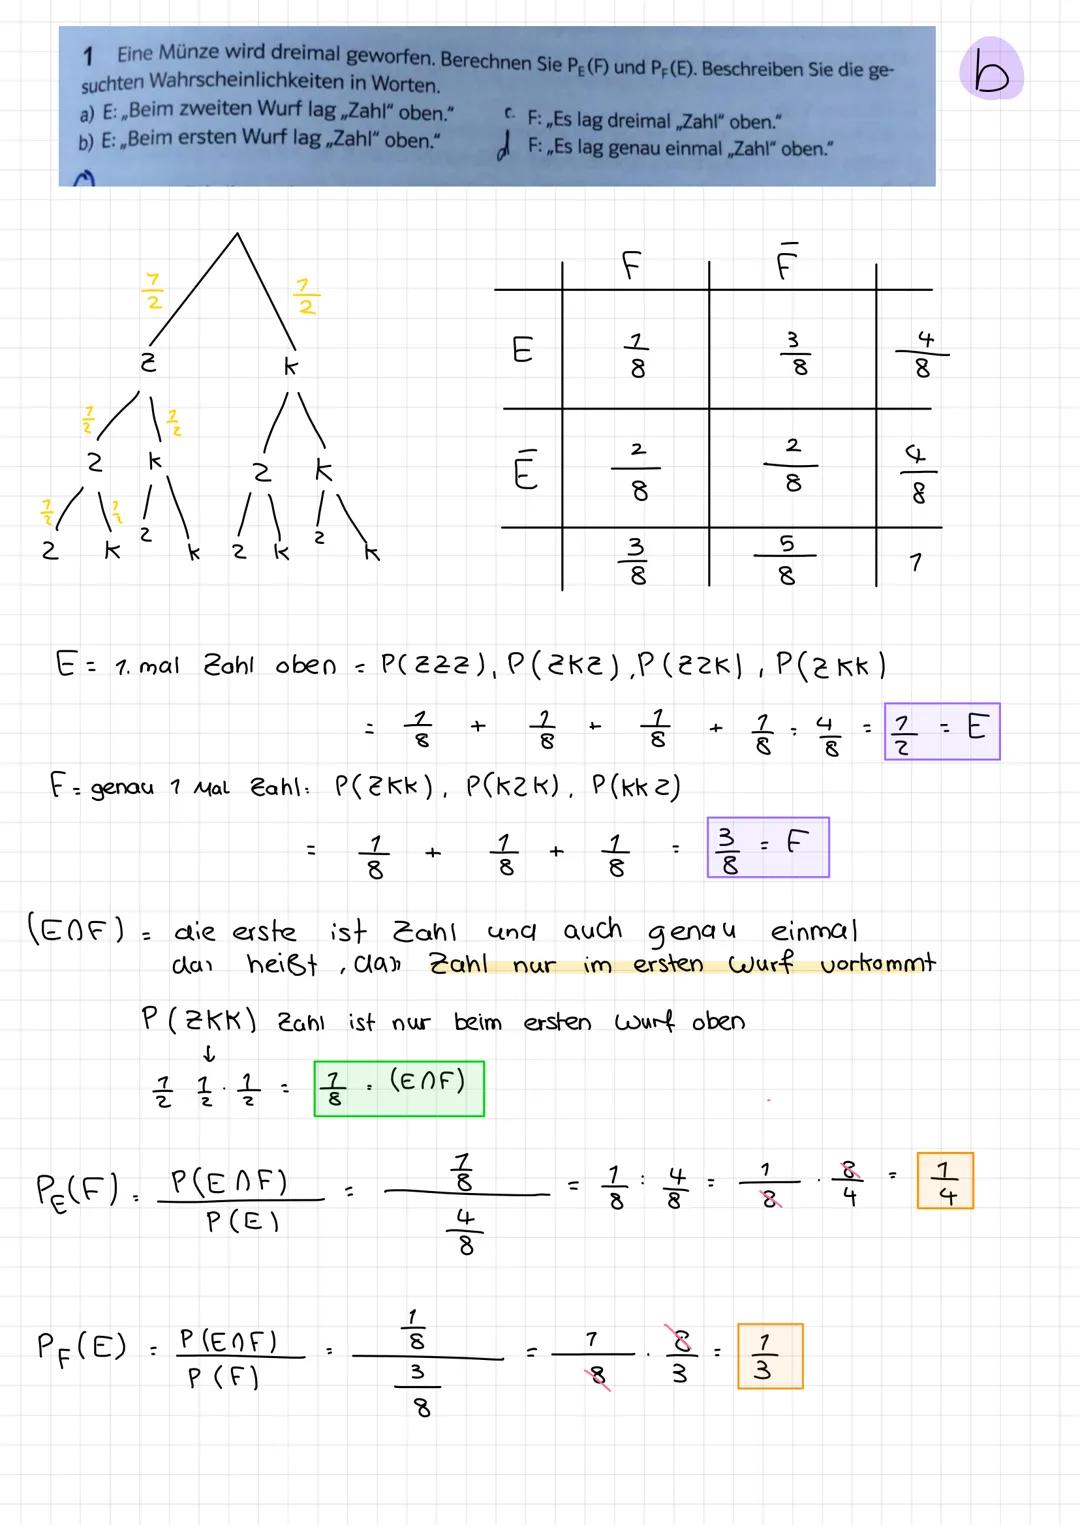 1 Eine Münze wird dreimal geworfen. Berechnen Sie P_E(F) und P_F(E). Beschreiben Sie die ge-
suchten Wahrscheinlichkeiten in Worten.
a) E: „Beim zweiten Wurf lag „Zahl“ oben.“ c. F: „Es lag dreimal „Zahl“ oben.“
b) E: „Beim ersten Wurf lag „Zahl“ oben.“ d F: „Es lag genau einmal „Zahl“ oben.“
b
1/2 1/2
Z K
1/2 1/2
Z K Z K
1/2 1/2
Z K Z K Z K Z K
F F̄
E 1/8 3/8 4/8
Ē 2/8 2/8 4/8
3/8 5/8 1
E = 1. mal Zahl oben = P(ZZZ), P(ZKZ), P(ZZK), P(ZKK)
= 1/8 + 1/8 + 1/8 + 1/8 = 4/8 = 1/2 = E
F = genau 1 Mal Zahl: P(ZKK), P(KZK), P(KKZ)
= 1/8 + 1/8 + 1/8 = 3/8 = F
(E∩F) = die erste ist Zahl und auch genau einmal
das heißt, dass Zahl nur im ersten Wurf vorkommt
P(ZKK) Zahl ist nur beim ersten Wurf oben
↓
1/2 1/2 · 1/2 = 1/8 = (E∩F)
P_E(F) = P(E∩F)/P(E) = (1/8)/(4/8) = 1/8 : 4/8 = 1/8 · 8/4 = 1/4
P_F(E) = P(E∩F)/P(F) = (1/8)/(3/8) = 1/8 · 8/3 = 1/3